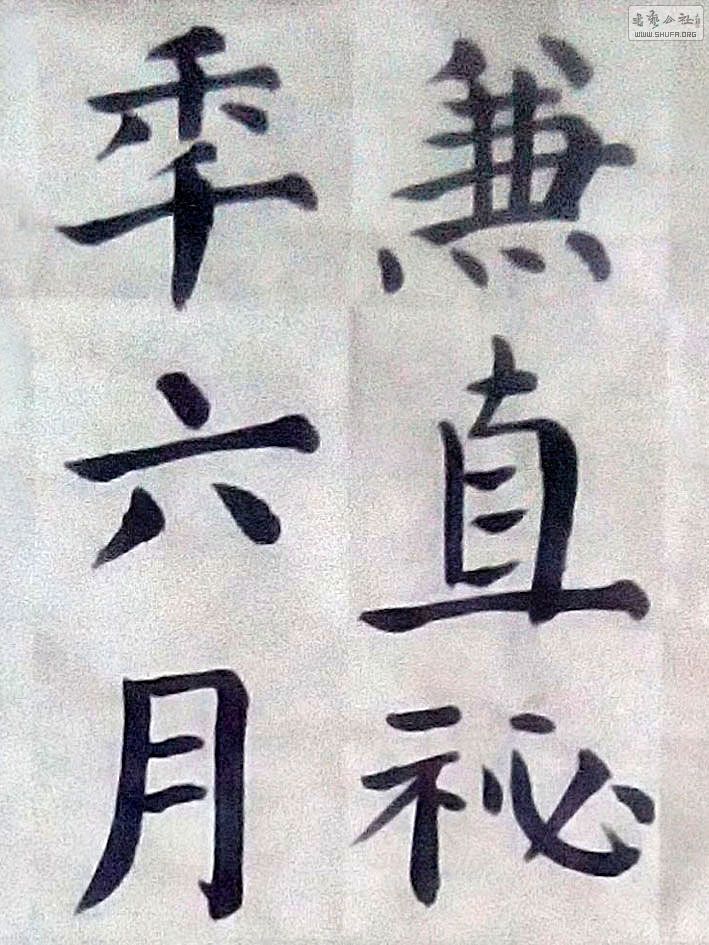 兼直祕
秊六月
書藝公社
WWW.SHUFA.ORG